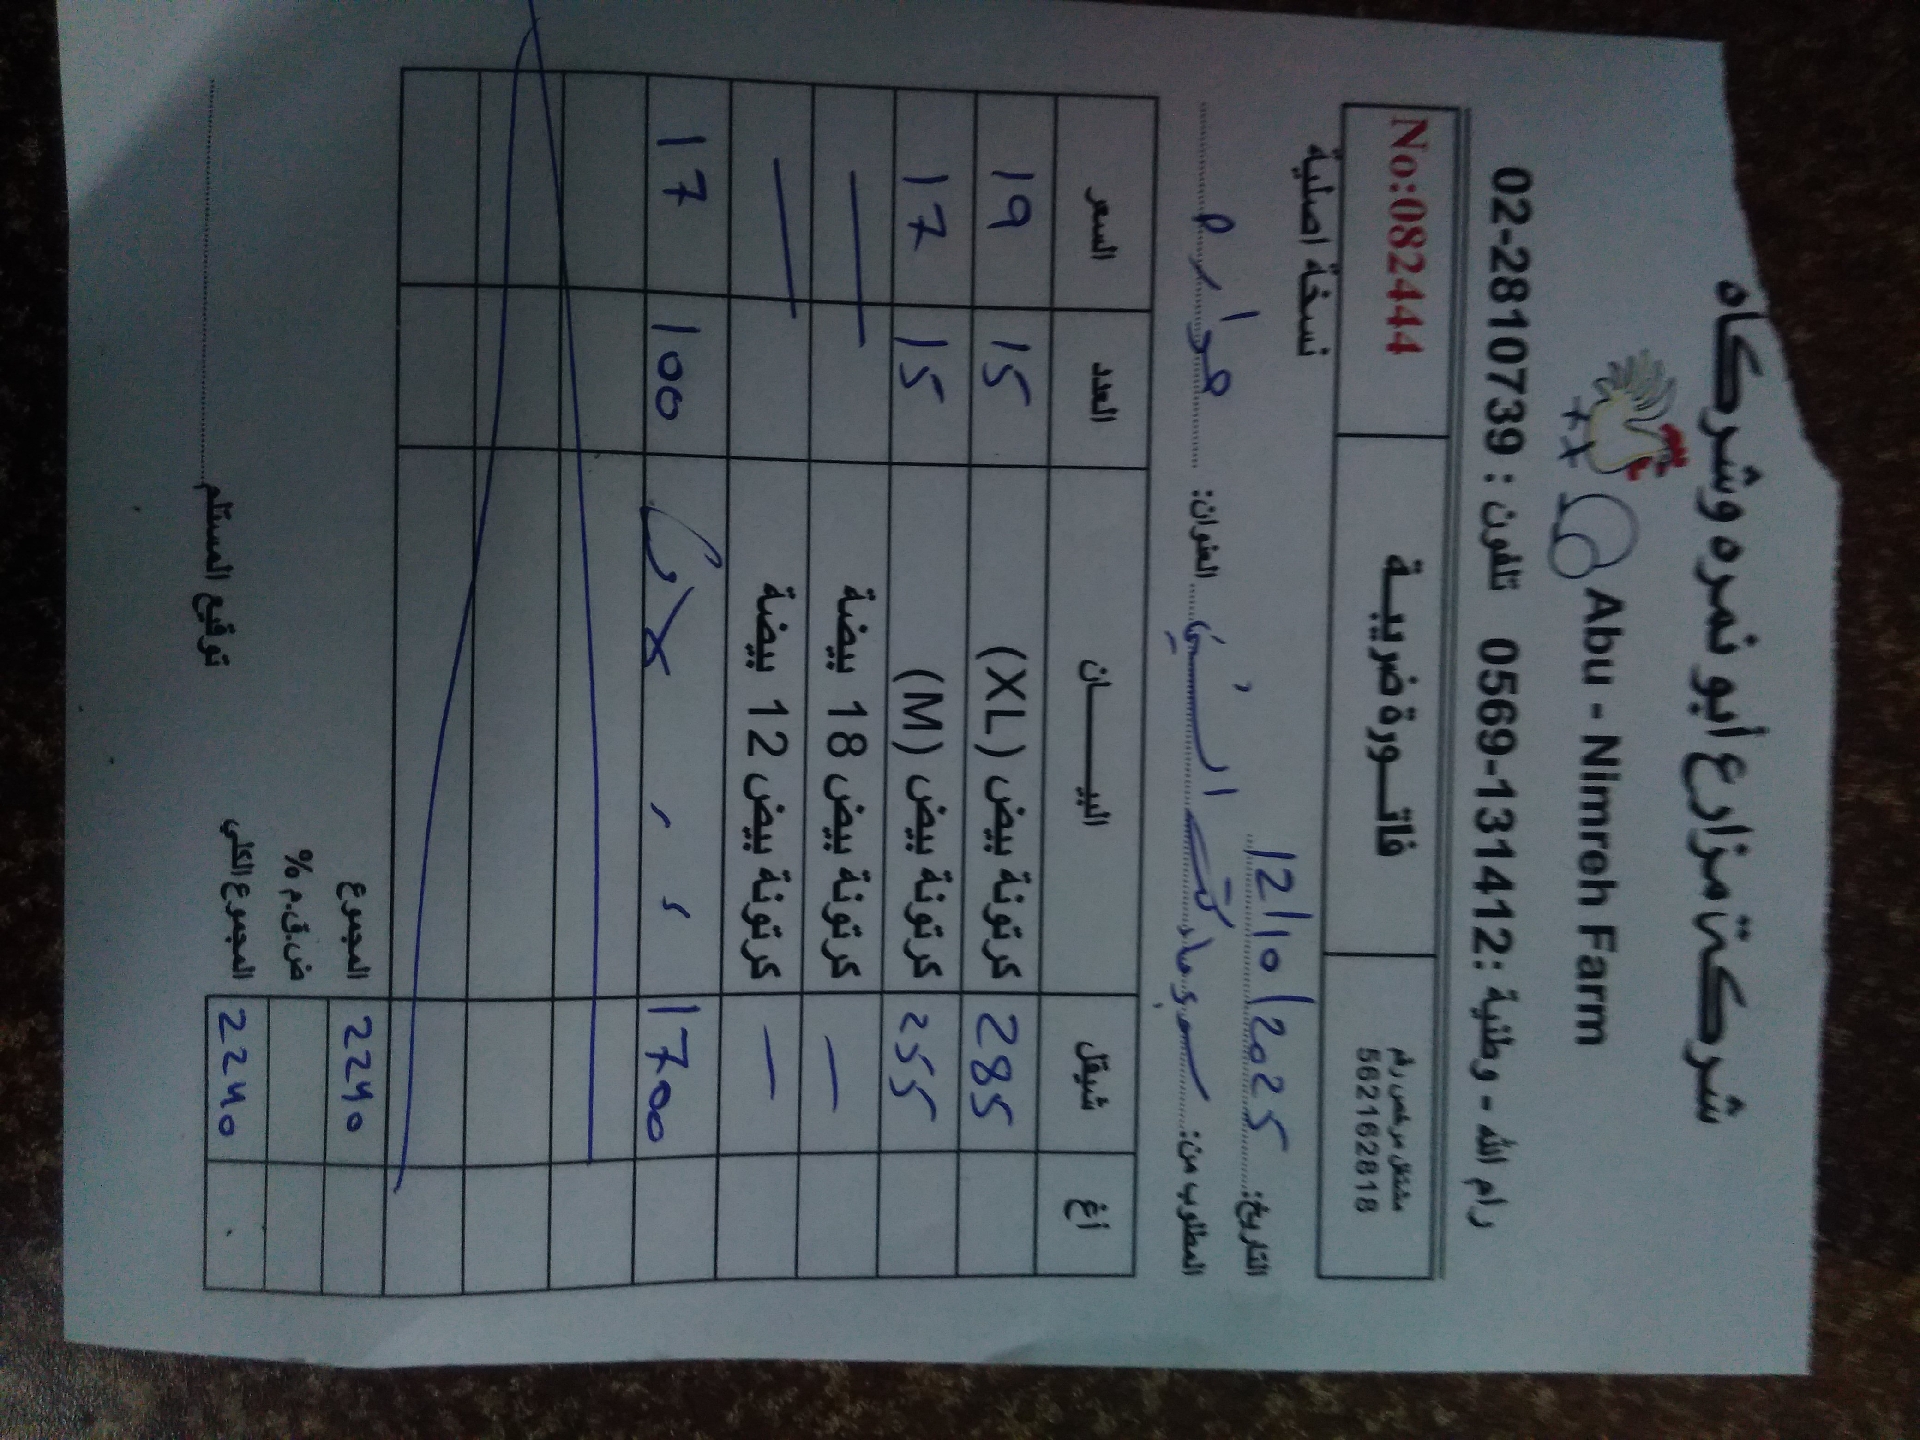 شركة مزارع أبو نمره وشركاه
Abu - Nimreh Farm
رام الله - وطنية : 0569-131412 تلفون : 02-2810739
مشتغل مرخص رقم 562162818 فاتـــورة ضريبيـــة No:082444
التاريخ: 12/10/2025 نسخة اصلية
المطلوب من: سوبرماركت العنوان:
اغ شيقل البيــــــــان العدد السعر
285 كرتونة بيض (XL) 15 19
255 كرتونة بيض (M) 15 17
— كرتونة بيض 18 بيضة —
— كرتونة بيض 12 بيضة —
1700 100 17
المجموع 2240
ض.ق.م %
المجموع الكلي 2240
توقيع المستلم